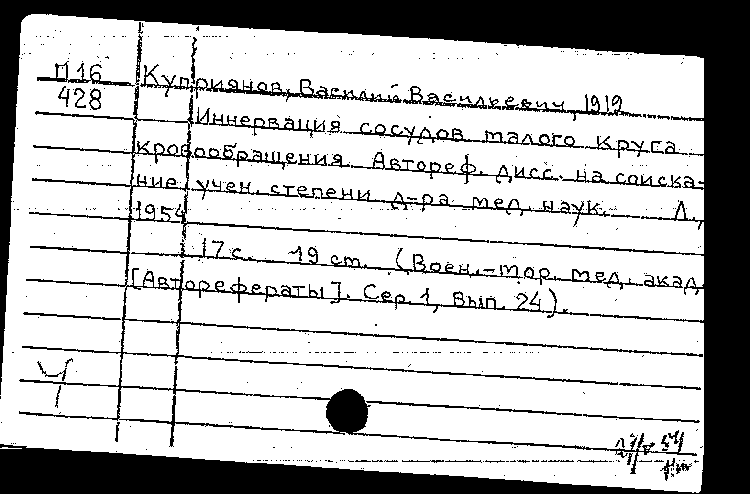 П16 Куприянов, Василий Василкевич, 1919
428 Иннервация сосудов малого круга
кровообращения. Автореф. дисс. на соиска-
ние учен. степени д-ра мед. наук. Л.,
1954
17 с. 19 ст. (Воен.-мор. мед. акад.
[Авторефераты]. Сер. 1, вып. 24).
Ч